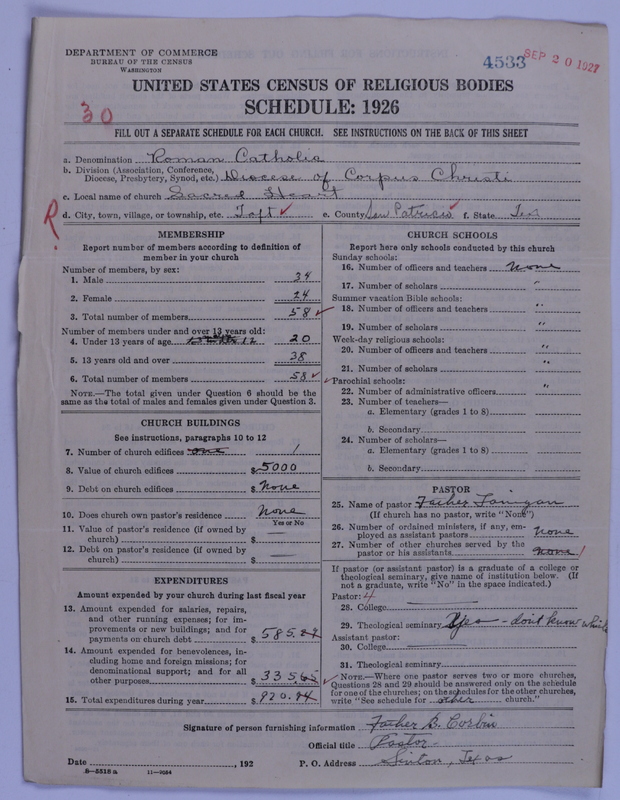 DEPARTMENT OF COMMERCE
BUREAU OF THE CENSUS
WASHINGTON
4533
SEP 20 1927
UNITED STATES CENSUS OF RELIGIOUS BODIES
SCHEDULE: 1926
30
FILL OUT A SEPARATE SCHEDULE FOR EACH CHURCH. SEE INSTRUCTIONS ON THE BACK OF THIS SHEET
a. Denomination Roman Catholic
b. Division (Association, Conference,
Diocese, Presbytery, Synod, etc.) Diocese of Corpus Christi
c. Local name of church Sacred Heart
R
d. City, town, village, or township, etc. Taft e. County San Patricio f. State Tex
MEMBERSHIP
Report number of members according to definition of
member in your church
Number of members, by sex:
1. Male 34
2. Female 24
3. Total number of members 58
Number of members under and over 13 years old:
4. Under 13 years of age 20
5. 13 years old and over 38
6. Total number of members 58
NOTE.—The total given under Question 6 should be the
same as the total of males and females given under Question 3.
CHURCH BUILDINGS
See instructions, paragraphs 10 to 12
7. Number of church edifices one 1
8. Value of church edifices $5000
9. Debt on church edifices $None
10. Does church own pastor's residence None
Yes or No
11. Value of pastor's residence (if owned by
church) $ —
12. Debt on pastor's residence (if owned by
church) $ —
EXPENDITURES
Amount expended by your church during last fiscal year
13. Amount expended for salaries, repairs,
and other running expenses; for im-
provements or new buildings; and for
payments on church debt $585.29
14. Amount expended for benevolences, in-
cluding home and foreign missions; for
denominational support; and for all
other purposes $335.65
15. Total expenditures during year $920.94
CHURCH SCHOOLS
Report here only schools conducted by this church
Sunday schools:
16. Number of officers and teachers None
17. Number of scholars "
Summer vacation Bible schools:
18. Number of officers and teachers "
19. Number of scholars "
Week-day religious schools:
20. Number of officers and teachers "
21. Number of scholars "
Parochial schools:
22. Number of administrative officers "
23. Number of teachers—
a. Elementary (grades 1 to 8)
b. Secondary
24. Number of scholars—
a. Elementary (grades 1 to 8)
b. Secondary
PASTOR
25. Name of pastor Father
(If church has no pastor, write "None")
26. Number of ordained ministers, if any, em-
ployed as assistant pastors None
27. Number of other churches served by the
pastor or his assistants None 1
If pastor (or assistant pastor) is a graduate of a college or
theological seminary, give name of institution below. (If
not a graduate, write "No" in the space indicated.)
Pastor: 4
28. College
29. Theological seminary Yes - don't know which
Assistant pastor:
30. College
31. Theological seminary
NOTE.—Where one pastor serves two or more churches,
Questions 28 and 29 should be answered only on the schedule
for one of the churches; on the schedules for the other churches,
write "See schedule for other church."
Signature of person furnishing information Father B. Corbin
Official title Pastor
Date , 192 P. O. Address Sinton, Texas
8—5318 a 11—2634